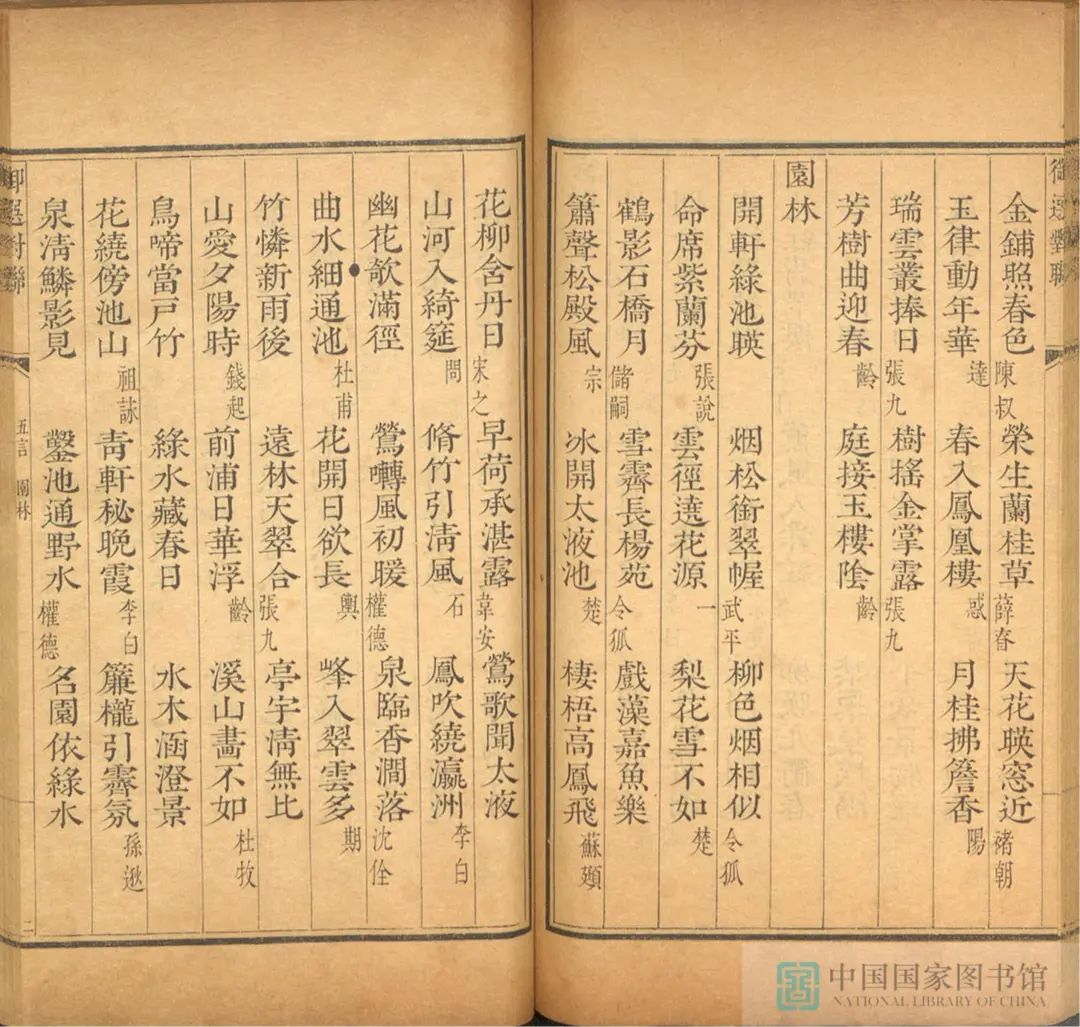 御選對聯
金鋪照春色 陳叔 榮生蘭桂草 薛春 天花暎窓近 褚朝
玉律動年華 達 春入鳳凰樓 惑 月桂拂簷香 陽
瑞雲叢捧日 張九 樹搖金掌露 張九
芳樹曲迎春 齡 庭接玉樓陰 齡
園林
開軒綠池暎 烟松銜翠幄 武平 柳色烟相似 令狐
命席紫蘭芬 張說 雲徑遶花源 一 梨花雪不如 楚
鶴影石橋月 儲嗣 雪霽長楊苑 令狐 戲藻嘉魚樂
簫聲松殿風 宗 冰開太液池 楚 棲梧高鳳飛 蘇頲
花柳含丹日 宋之 早荷承湛露 韋安 鶯歌聞太液
山河入綺筵 問 脩竹引清風 石 鳳吹繞瀛洲 李白
幽花欹滿徑 鶯囀風初暖 權德 泉臨香澗落 沈佺
曲水細通池 杜甫 花開日欲長 輿 峰入翠雲多 期
竹憐新雨後 遠林天翠合 張九 亭宇清無比
山愛夕陽時 錢起 前浦日華浮 齡 溪山畫不如 杜牧
鳥啼當戶竹 綠水藏春日 水木涵澄景
花繞傍池山 祖詠 青軒秘晚霞 李白 簾櫳引霽氛 孫逖
泉清鱗影見 鑿池通野水 權德 名園依綠水
御選對聯 五言 園林 二
中国国家图书馆
NATIONAL LIBRARY OF CHINA